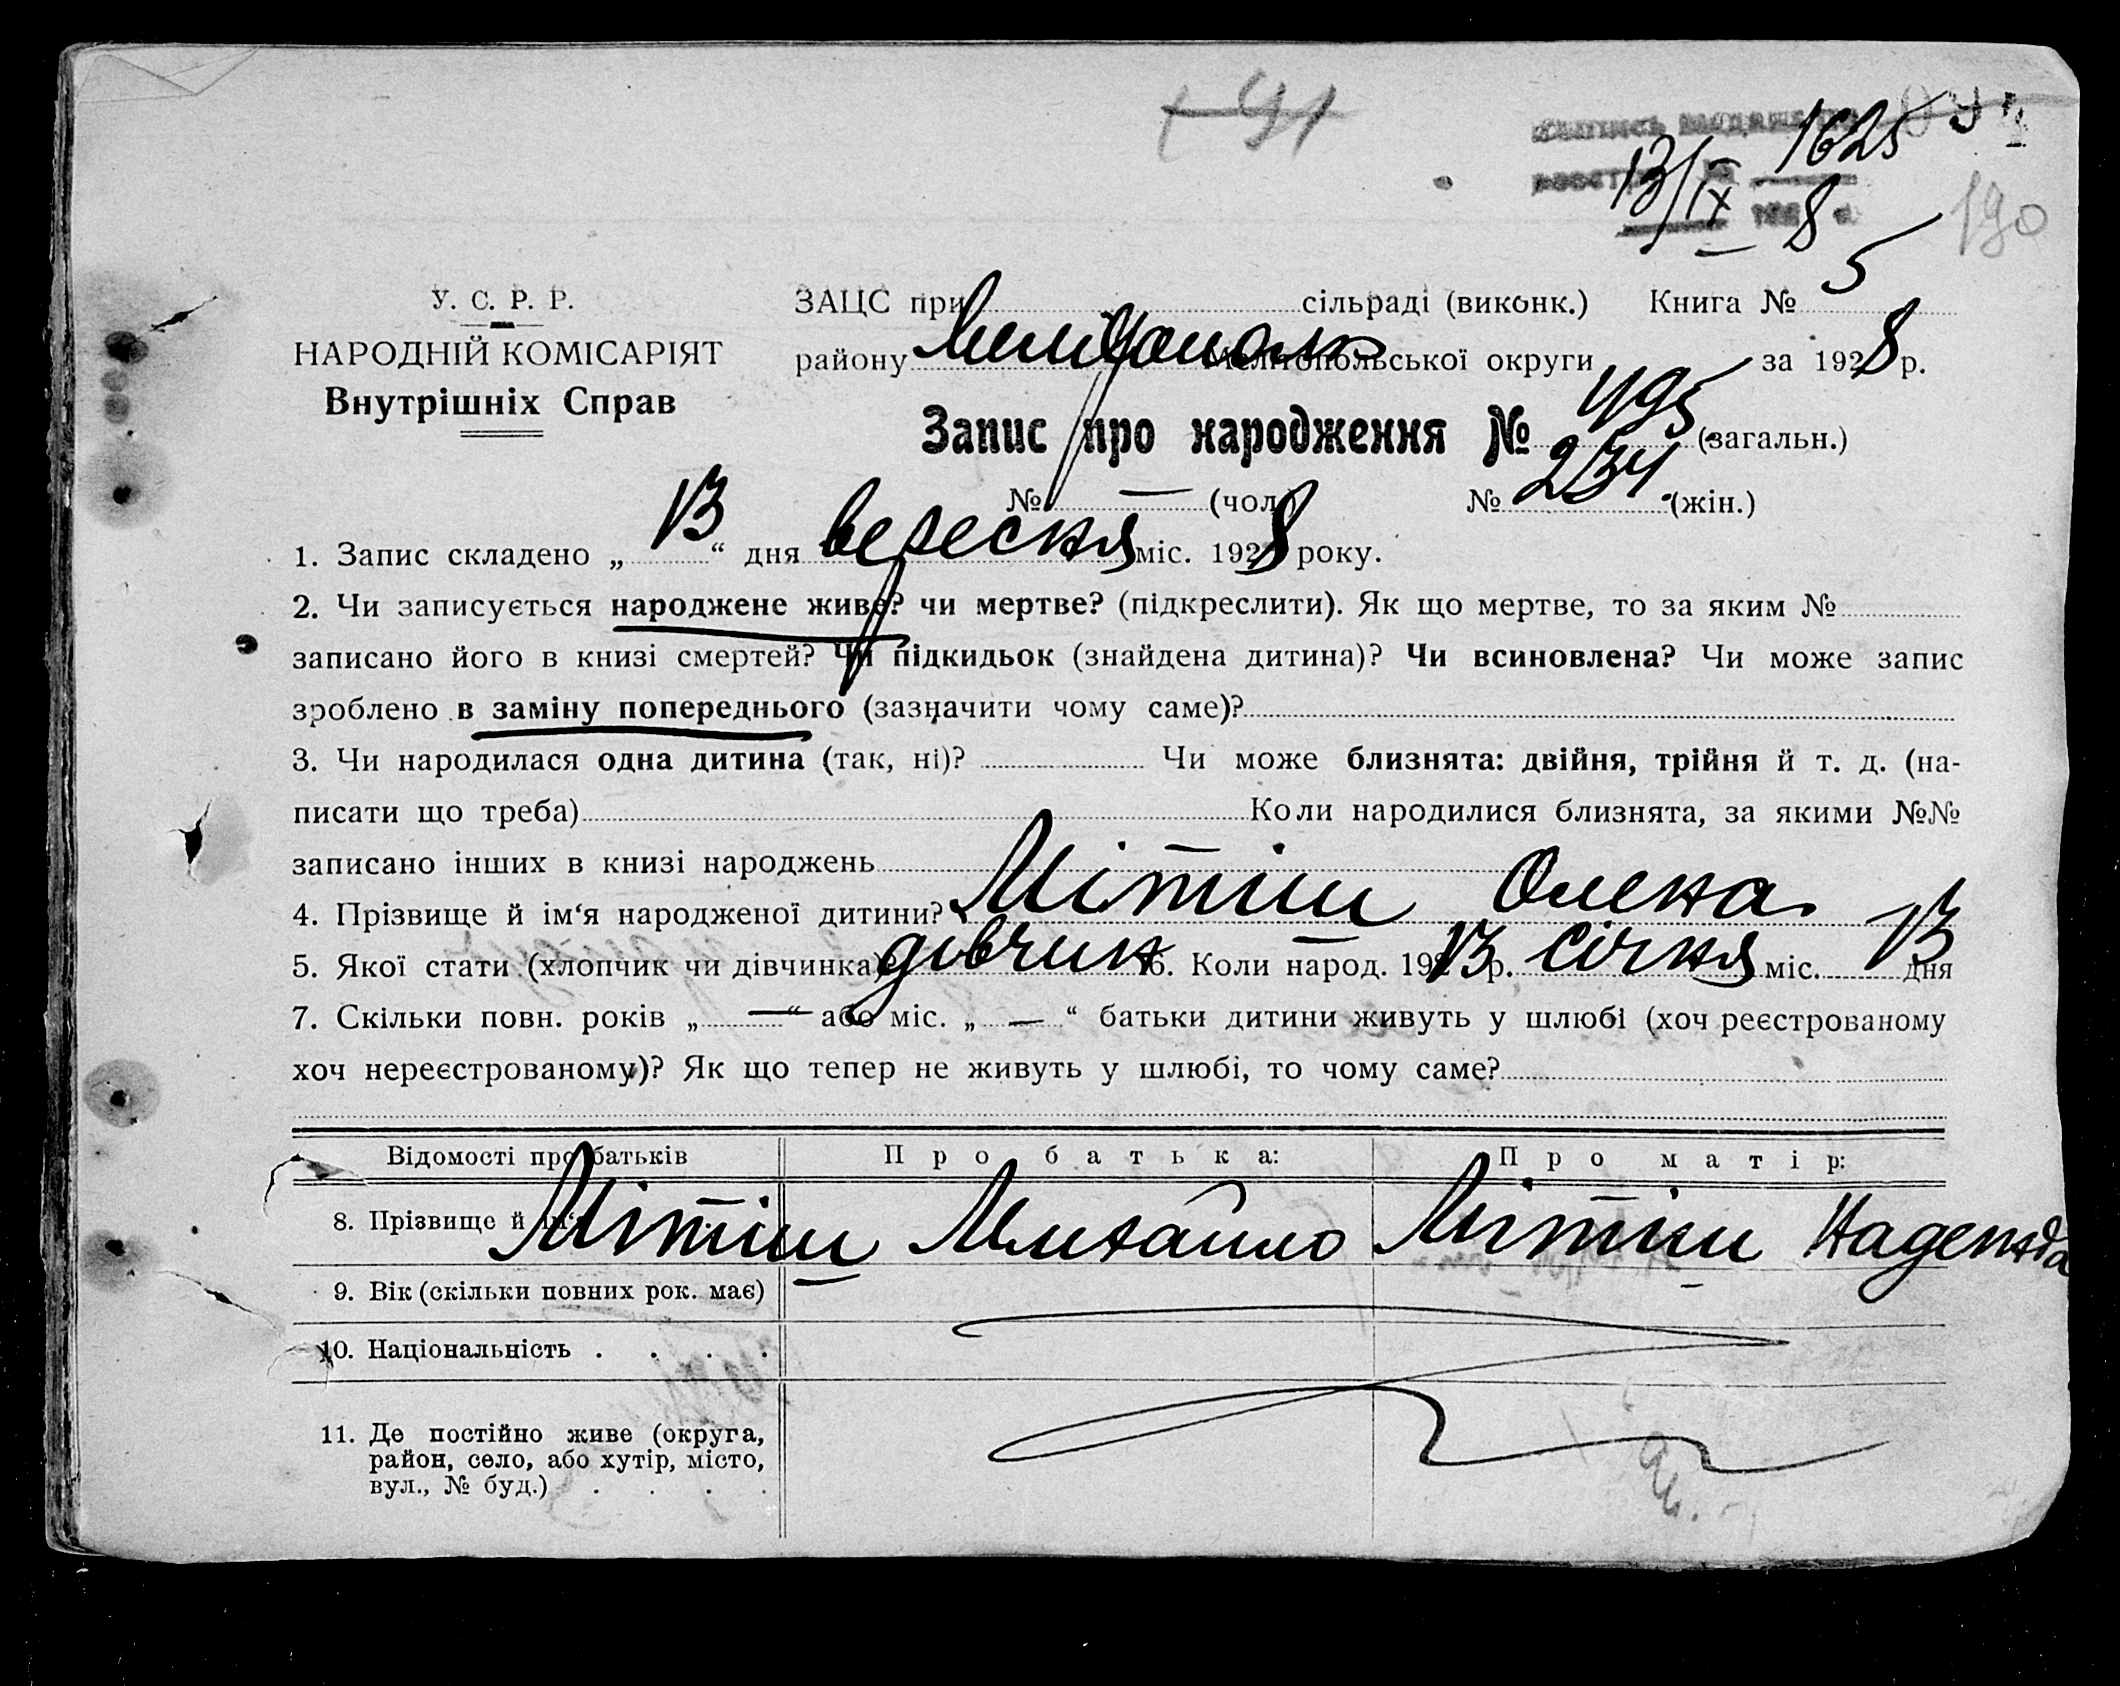 1625
13/IX 8
190
У. С. Р. Р.
НАРОДНІЙ КОМІСАРІЯТ
Внутрішніх Справ
ЗАЦС при сільраді (виконк.) Книга № 5
району Мелітополь Мелітопольської округи за 1928 р.
Запис про народження № 495 (загальн.)
№ — (чол.) № 234 (жін.)
1. Запис складено „ 13 “ дня вересня міс. 1928 року.
2. Чи записується народжене живе? чи мертве? (підкреслити). Як що мертве, то за яким №
записано його в книзі смертей? Чи підкидьок (знайдена дитина)? Чи всиновлена? Чи може запис
зроблено в заміну попереднього (зазначити чому саме)?
3. Чи народилася одна дитина (так, ні)? Чи може близнята: двійня, трійня й т. д. (на-
писати що треба) Коли народилися близнята, за якими №№
записано інших в книзі народжень
4. Прізвище й ім‘я народженої дитини? Мітіш Олена
5. Якої стати (хлопчик чи дівчинка) дівчин 6. Коли народ. 1913 р. січня міс. 13 дня
7. Скільки повн. років „ — “ або міс. „ — “ батьки дитини живуть у шлюбі (хоч реєстрованому
хоч нереєстрованому)? Як що тепер не живуть у шлюбі, то чому саме?
Відомості про батьків Про батька: Про матір:
8. Прізвище й ім‘я Мітіш Михайло Мітіш Надежда
9. Вік (скільки повних рок. має)
10. Національність . . . .
11. Де постійно живе (округа,
район, село, або хутір, місто,
вул., № буд.) . . . .